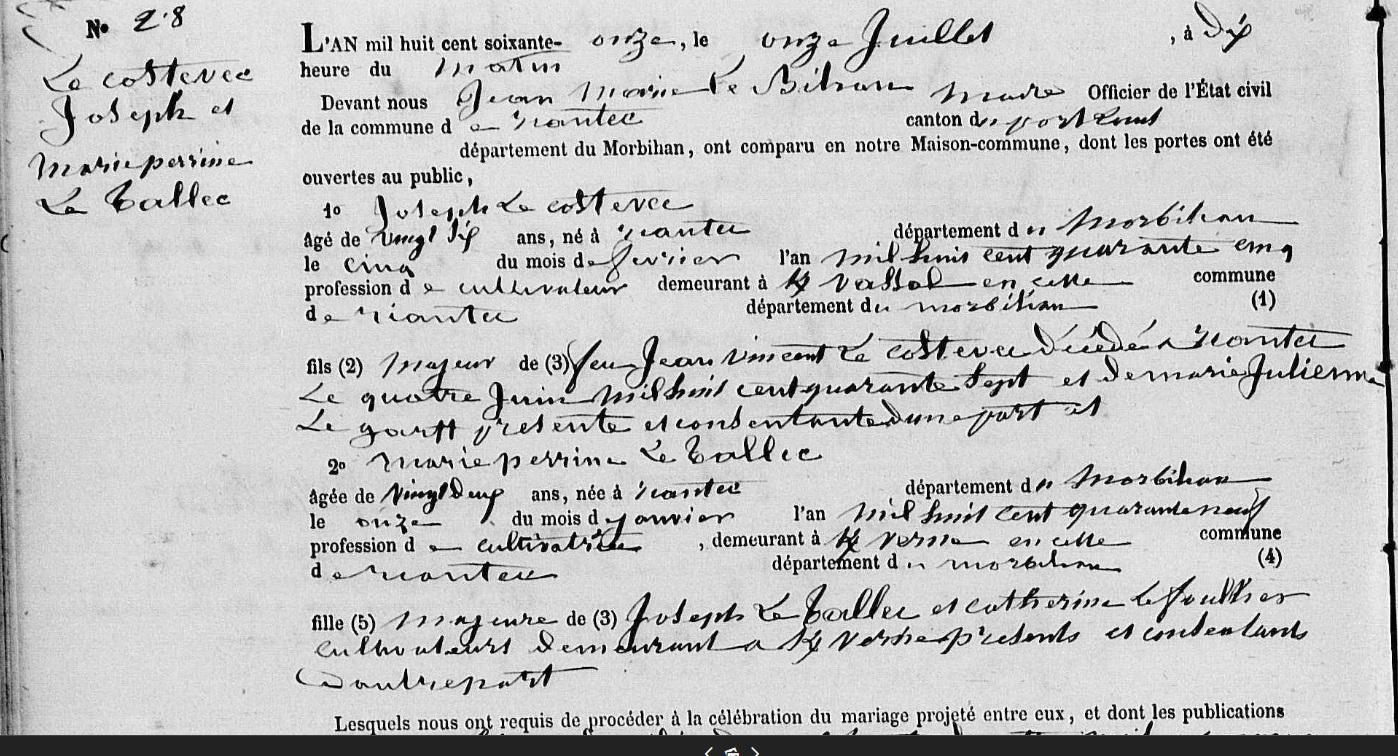 No 28
Le costevec
Joseph et
marie perrine
Le Tallec
L'AN mil huit cent soixante- onze, le onze Juillet , à Dix
heure du matin
Devant nous Jean Marie Le Bihan maire Officier de l'État civil
de la commune de riantec canton du port Louis
département du Morbihan, ont comparu en notre Maison-commune, dont les portes ont été
ouvertes au public,
1o Joseph Le costevec
âgé de vingt six ans, né à riantec département du Morbihan
le cinq du mois de fevrier l'an mil huit cent quarante cinq
profession de cultivateur demeurant à en cette commune
de riantec département du morbihan (1)
fils (2) majeur de (3) feu Jean Vincent Le costevec Décédé a riantec
Le quatre Juin mil huit cent quarante Sept et de marie Julienne
Le presente et consentante d'une part et
2o marie perrine Le Tallec
âgée de vingt Deux ans, née à riantec département du Morbihan
le onze du mois de janvier l'an mil huit cent quarante neuf
profession de cultivatrice , demeurant à en cette commune
de riantec département du morbihan (4)
fille (5) majeure de (3) Joseph Le Tallec et catherine
cultivateurs demeurant a presents et consentants
D'autre part
Lesquels nous ont requis de procéder à la célébration du mariage projeté entre eux, et dont les publications